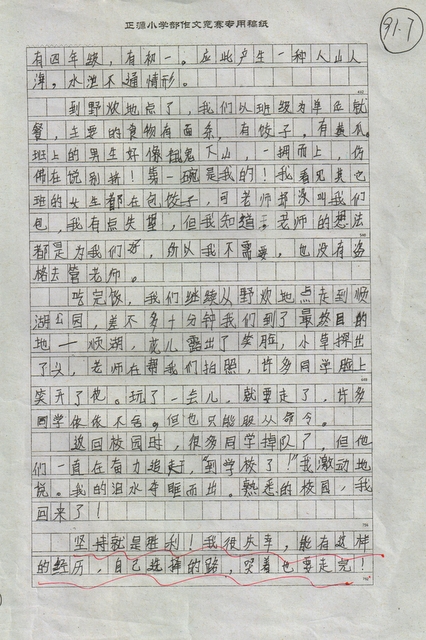 正源小学部作文竞赛专用稿纸
91.7
有四年级，有初一。应此产生一种人山人
海，水泄不通情形。
到野炊地点了，我们以班级为单位就
餐，主要的食物有面条，有饺子，有黄瓜。
班上的男生好像饿鬼下山，一拥而上，仿
佛在说别挤！第一碗是我的！我看见其它
班的女生都在包饺子，可老师却没叫我们
包，我有点失望，但我知道：老师的想法
都是为我们好，所以我不需要，也没有资
格去管老师。
吃完饭，我们继续从野炊地点走到顺
湖公园，差不多十分钟我们到了最终目的
地一顺湖，花儿露出了笑脸，小草探出
了头，老师在帮我们拍照，许多同学脸上
笑开了花。玩了一会儿，就要走了，许多
同学依依不舍。但也只能服从命令。
返回校园时，很多同学掉队了，但他
们一直在奋力追赶，"到学校了！"我激动地
说。我的泪水夺眶而出。熟悉的校园，我
回来了！
坚持就是胜利！我很庆幸，能有这样
的经历，自己选择的路，哭着也要走完！